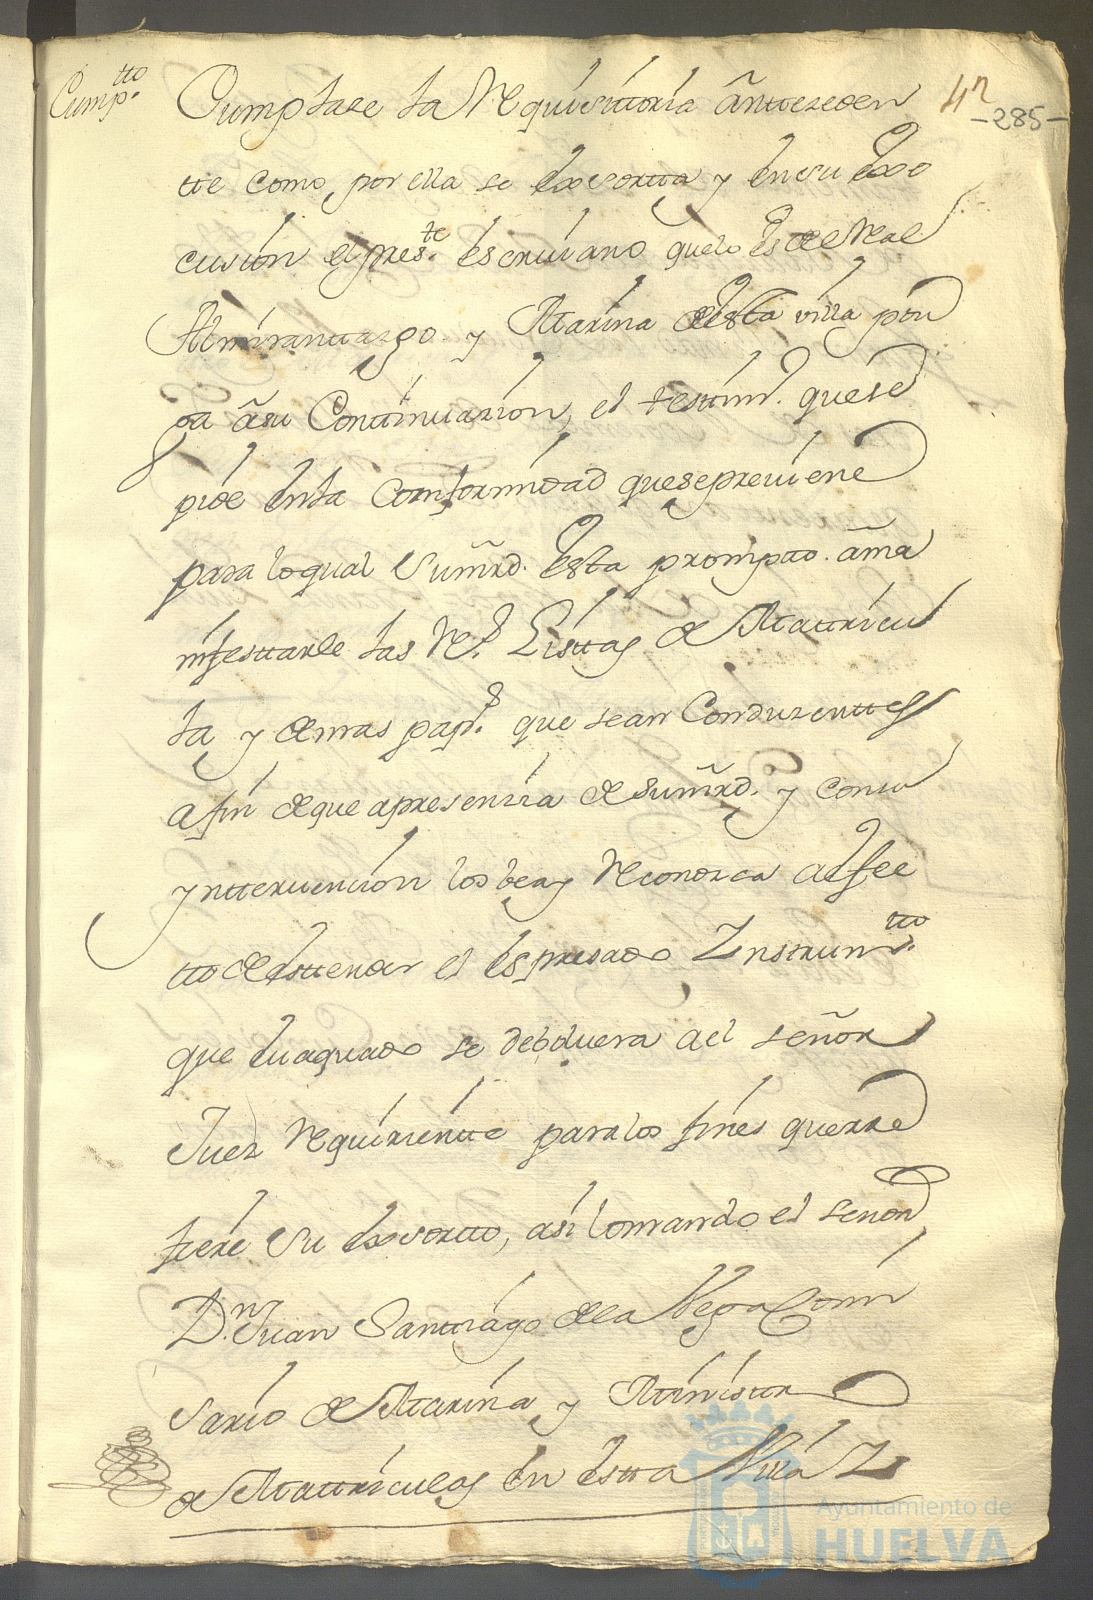 Cump.tto
Cumplase la Requisitoria antteceden
tte como, por ella se Exsortta y en su Exe
cusion el pres.te Escriuano que lo es del Real
Almiranttazgo y Marina de esta villa pon
ga a su Continuazion, el testim.o que se
pide en la Conformidad que se preuiene
para lo qual Su mrd. Esta prompto. a ma
nifesttarle las R.s Listtas de Mattricu
la y demas pap.s que sean Conduzenttes
a fin de que a presenzia de su mrd. y con su
ynteruencion los bea y Reconozca al fec
tto de esttender el Espresado Ynstrum.tto
que euaquado se deboluera a el señor
Juez Requirientte para los fines que re
fiere Su Exsortto, asi lo mando el señor
D.n Juan Santtiago de la Vega Comi
sario de Marina y Ministr
de Mattriculas en estta Villa
42
-285-
Ayuntamiento de
HUELVA